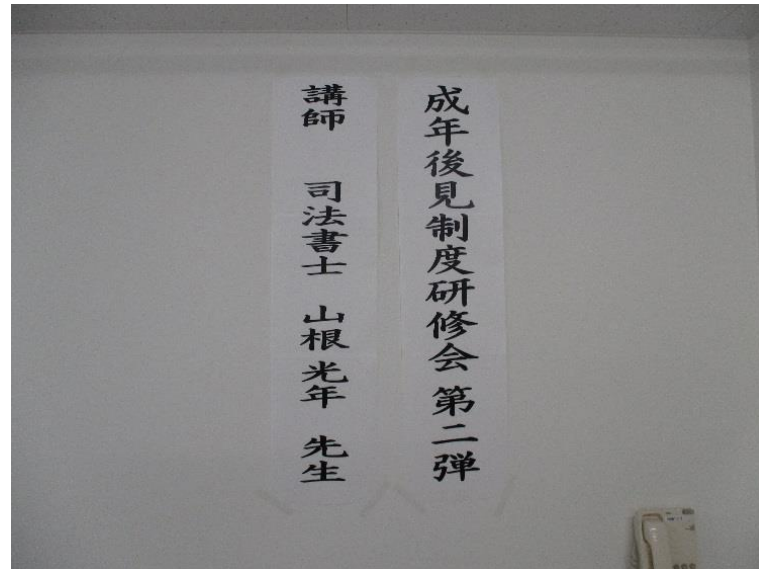 成年後見制度研修会 第二弾
講師 司法書士 山根光年 先生